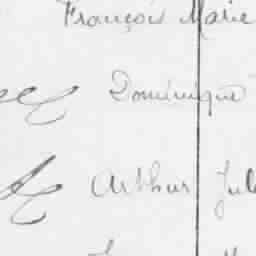 François Marie
Dominique
Arthur Jul